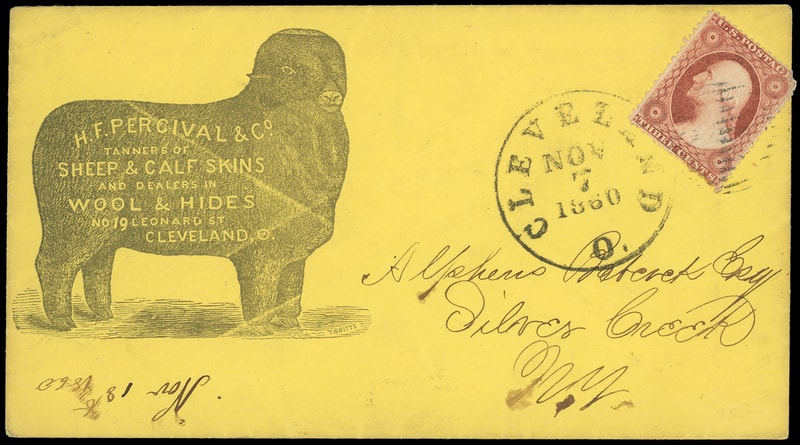 H. F. PERCIVAL & Co.
TANNERS OF
SHEEP & CALF SKINS
AND DEALERS IN
WOOL & HIDES
No 19 LEONARD ST
CLEVELAND, O.
TIBBITTS
U.S. POSTAGE
THREE CENTS
CLEVELAND
NOV
7
1860
O.
Alpheus Babcock Esq
Silver Creek
N.Y.
Nov 18
1860